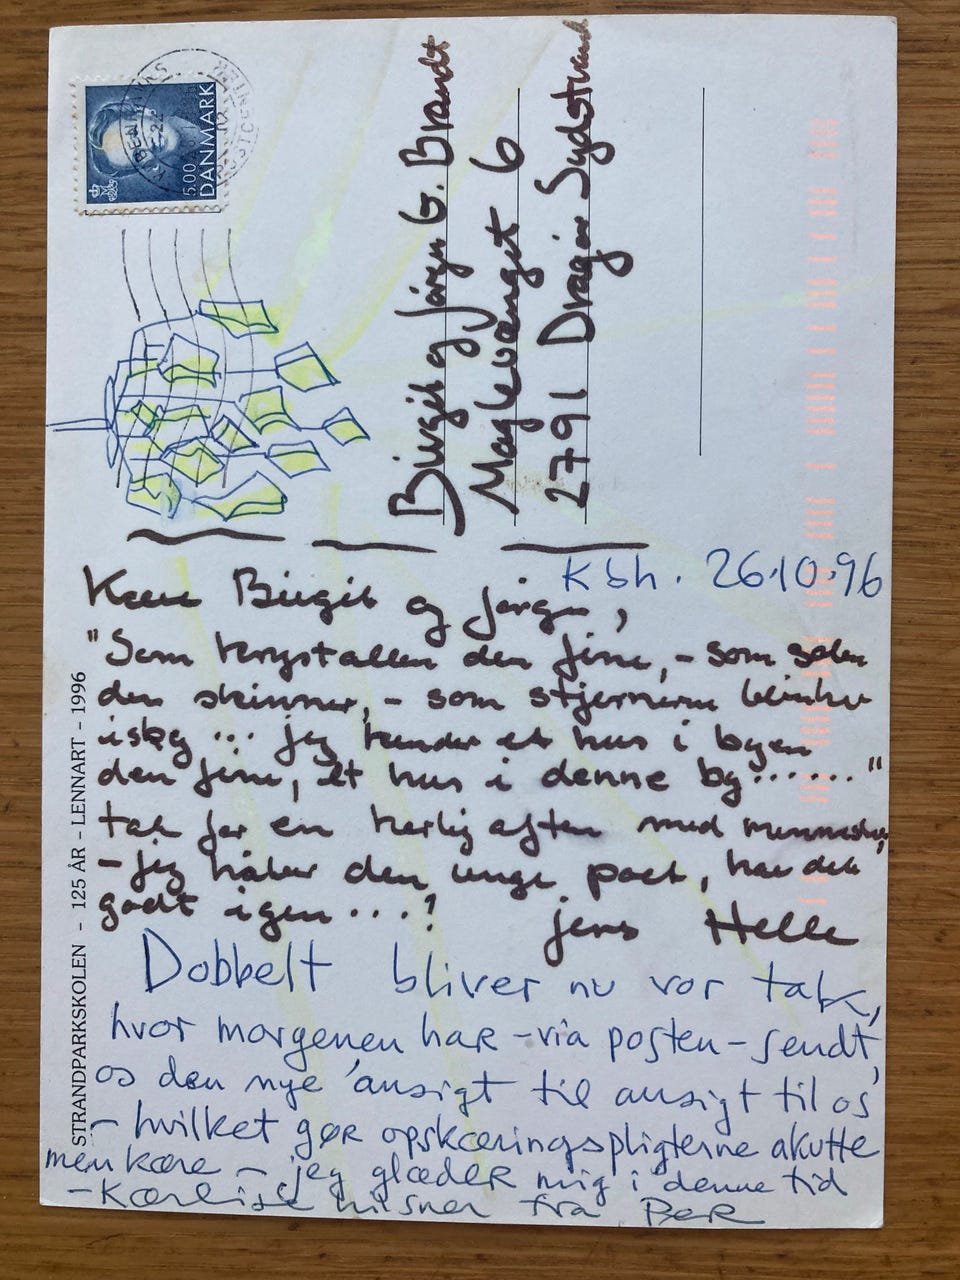 5.00
DANMARK
Birgit og Jørgen G. Brandt
Maglevænget 6
2791 Dragør Sydstrand
STRANDPARKSKOLEN - 125 ÅR - LENNART - 1996
Kbh. 26.10.96
Kære Birgit og Jørgen,
"Som krystallen den fine, - som solen
den skinner, - som stjernerne blinke
i sky ... jeg kender et hus i byen
den fine, et hus i denne by ......"
tak for en herlig aften med mennesker,
- jeg håber den unge poet, har det
godt igen ...!
Jens Helle
Dobbelt bliver nu vor tak,
hvor morgenen har - via posten - sendt
os den nye 'ansigt til ansigt til os'
- hvilket gør opskæringspligterne akutte
men kære - jeg glæder mig i denne tid
- Kærlige hilsner fra Per